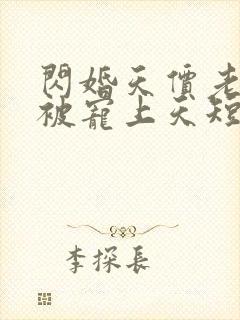 閃婚天價老
被寵上天短
李探長